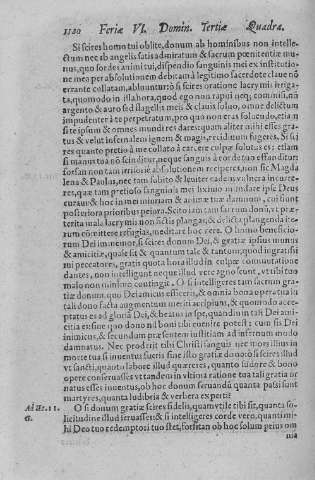 1120 Feriæ VI. Domin. Tertiæ Quadra.
Si scires homo tui oblite, donum ab hominibus non intelle-
ctum nec ab angelis satis admiratum & sacrum pœnitentiæ mu-
nus, quo sordes animi tui, dispendio sanguinis mei ex institutio-
ne mea per absolutionem debitam à legitimo sacerdote
errante collatam, abluuntur: ò si scires oratione lacrymis irriga-
ta, quomodo in illa hora, quod ego non rapui
argento & auro sed flagellis meis & clauis soluo, omne delictum
impudenter à te perpetratum, pro quo non eras soluendo, etiam
si te ipsum & omnes mundi res dares, quam aliter mihi esses gra-
tus & velut infernalem ignem & magis,
res quanto pretio à me collato à carcere culpæ solutus es: etiam
si manus tua nõ scinditur, neque sanguis à corde tuo effunditur:
forsan non tam irrisorie absolutionem reciperes, non sic Magda
lena & Paulus, nec tam subito & leuiter eadem vulnera incurre-
res, quæ tam pretioso sanguinis mei lixiuio mundate ipse Deus
curaui: & hoc in mei iniuriam & animæ tuæ damnum, cui sunt
posteriora prioribus peiora. Scito iam tam sacrum donũ, vt præ-
terita mala lacrymis non fictis plangas, & delicta plangenda ite-
rum cõmittere refugias, meditare hoc vere. O homo beneficio-
rum Dei immemor, si scires donum Dei, & gratiæ ipsius munus
& amicitiæ, quale sit & quantum tale & tantum, quod ingratissi
mi peccatores, gratis quota hora illud in culpæ commutatione
dantes, non intelligunt neque illud vere agno sunt, vt tibi tuo
malo non minime contingit. O si intelligeres tam sacrum gra-
tiæ donum quo Dei amicus efficeris, & omnia bona opera tua in
tali dono facta augmentum meriti accipiunt, & quomodo acce-
ptatus es ad gloriã Dei, & beatus in spe, quandiu in tali Dei ami-
citia es sine quo dono nil boni tibi euenire potest: cum sis Dei
inimicus, & secundum præsentem iustitiam ad infernum modo
damnatus. Nec proderit tibi Christi sanguis nec mors illius in
morte tua si inuentus fueris sine isto gratiæ dono: ò si scires illud
vt sancti, quanto labore illud quæreres, quanto sudore & bono
opere conseruasses vt tandem in vltima ratione tua in gratia or-
natus esses inuentus, ob hoc donum seruandũ quanta passi sunt
martyres, quanta ludibria & verbera experti?
O si donum gratiæ scires fidelis, quam vtile tibi sit, quanta so-
licitudine illud seruasses: & si intelligeres corde vero, quanti mi-
hi Deo tuo redemptori tuo stet, forsitan ob hoc solum prius om
nia